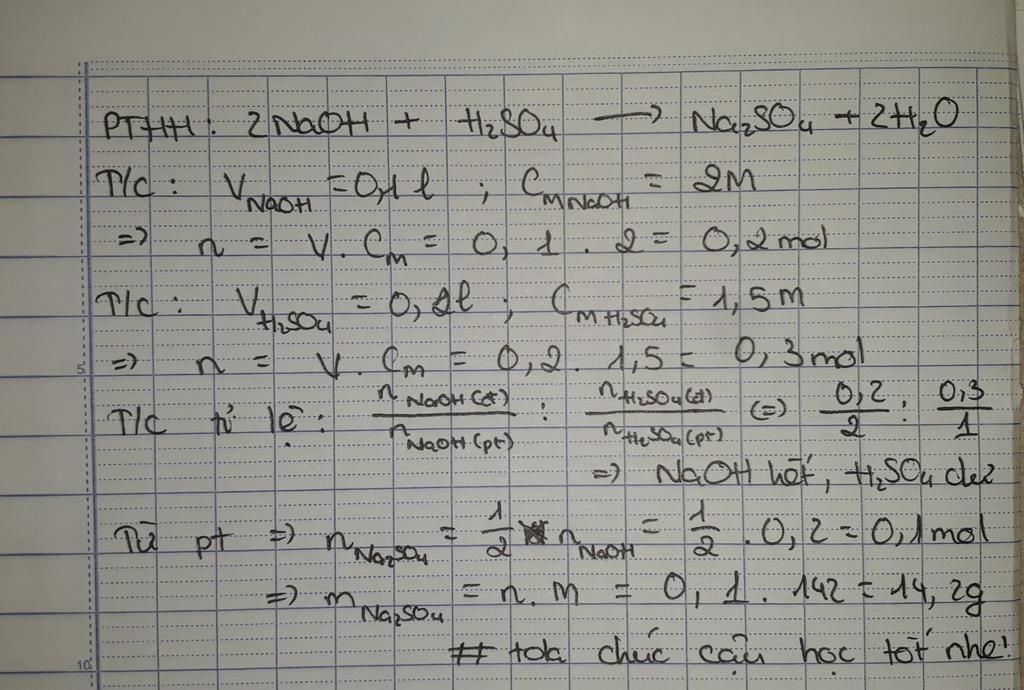 PTHH: 2NaOH + H₂SO₄ → Na₂SO₄ + 2H₂O
T/c: V_NaOH = 0,1l ; C_M NaOH = 2M
=> n = V. C_M = 0, 1 . 2 = 0,2 mol
T/c: V_H₂SO₄ = 0,2l ; C_M H₂SO₄ = 1,5M
5 => n = V. C_M = 0,2. 1,5 = 0,3 mol
T/c tỉ lệ: n_NaOH(đề)/n_NaOH(pt) : n_H₂SO₄(đề)/n_H₂SO₄(pt) <=> 0,2/2 : 0,3/1
=> NaOH hết, H₂SO₄ dư
Từ pt => n_Na₂SO₄ = 1/2 n_NaOH = 1/2 . 0,2 = 0,1 mol
=> m_Na₂SO₄ = n. M = 0, 1. 142 = 14,2g
10 # tola chúc cậu học tốt nhe!